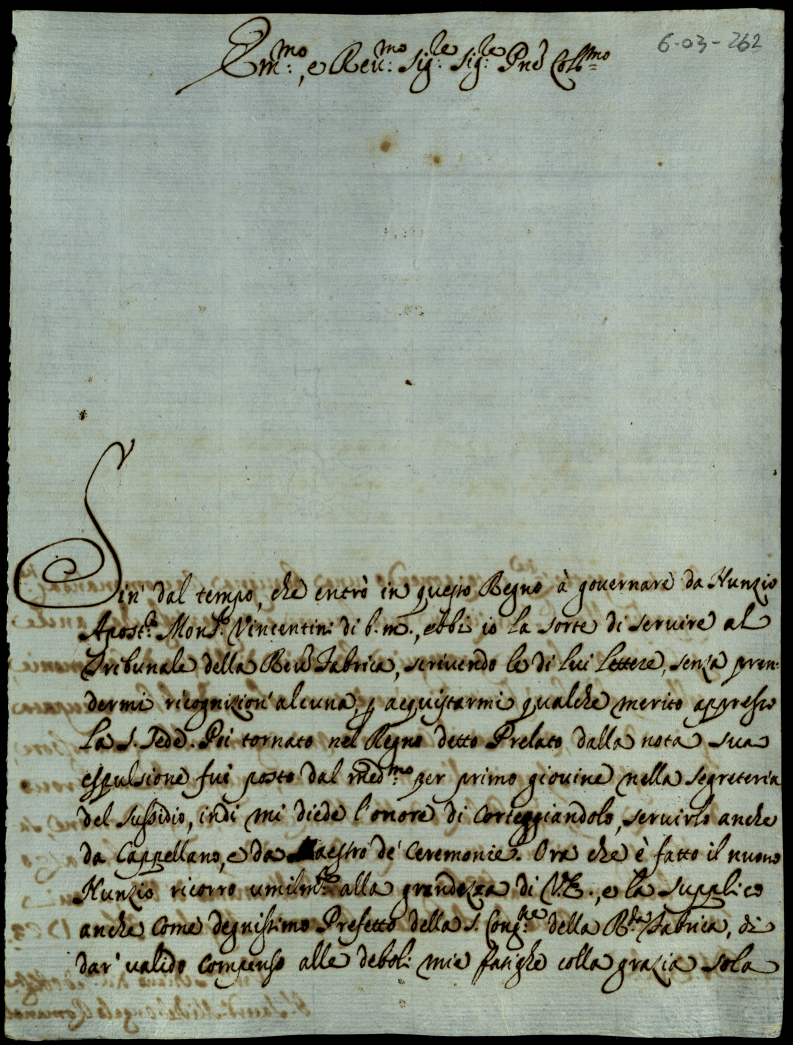 6-03-262
Em.mo, e Rev.mo Sig.re Sig.re Pne Coll.mo
Sin' dal tempo, che entrò in questo Regno à governare da Nunzio
Apost.o Mons.r Vincentini di b.m., ebbi io la sorte di servire al
Tribunale della Rev. Fabrica, scrivendo le di lui lettere, senza pren-
dermi ricognizion' alcuna, p acquistarmi qualche merito appresso
la S. Sede. Poi tornato nel Regno detto Prelato dalla nota sua
espulsione fui posto dal med.mo per primo giovine nella segreteria
del sussidio, indi mi diede l'onore di corteggiandolo, servirlo anche
da Cappellano, e da Maestro de' Ceremonie. Ora che è fatto il nuovo
Nunzio ricorro umilm.te alla grandezza di V.E., e la supplico
anche come degnissimo Prefetto della S. Cong.ne della R.da Fabrica, di
dar' valido compenso alle deboli mie fatighe colla grazia sola